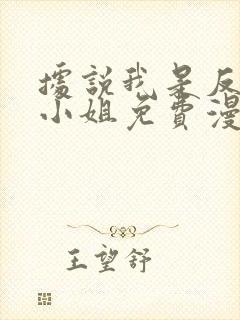 據說我是反
小姐免費漫
王望舒